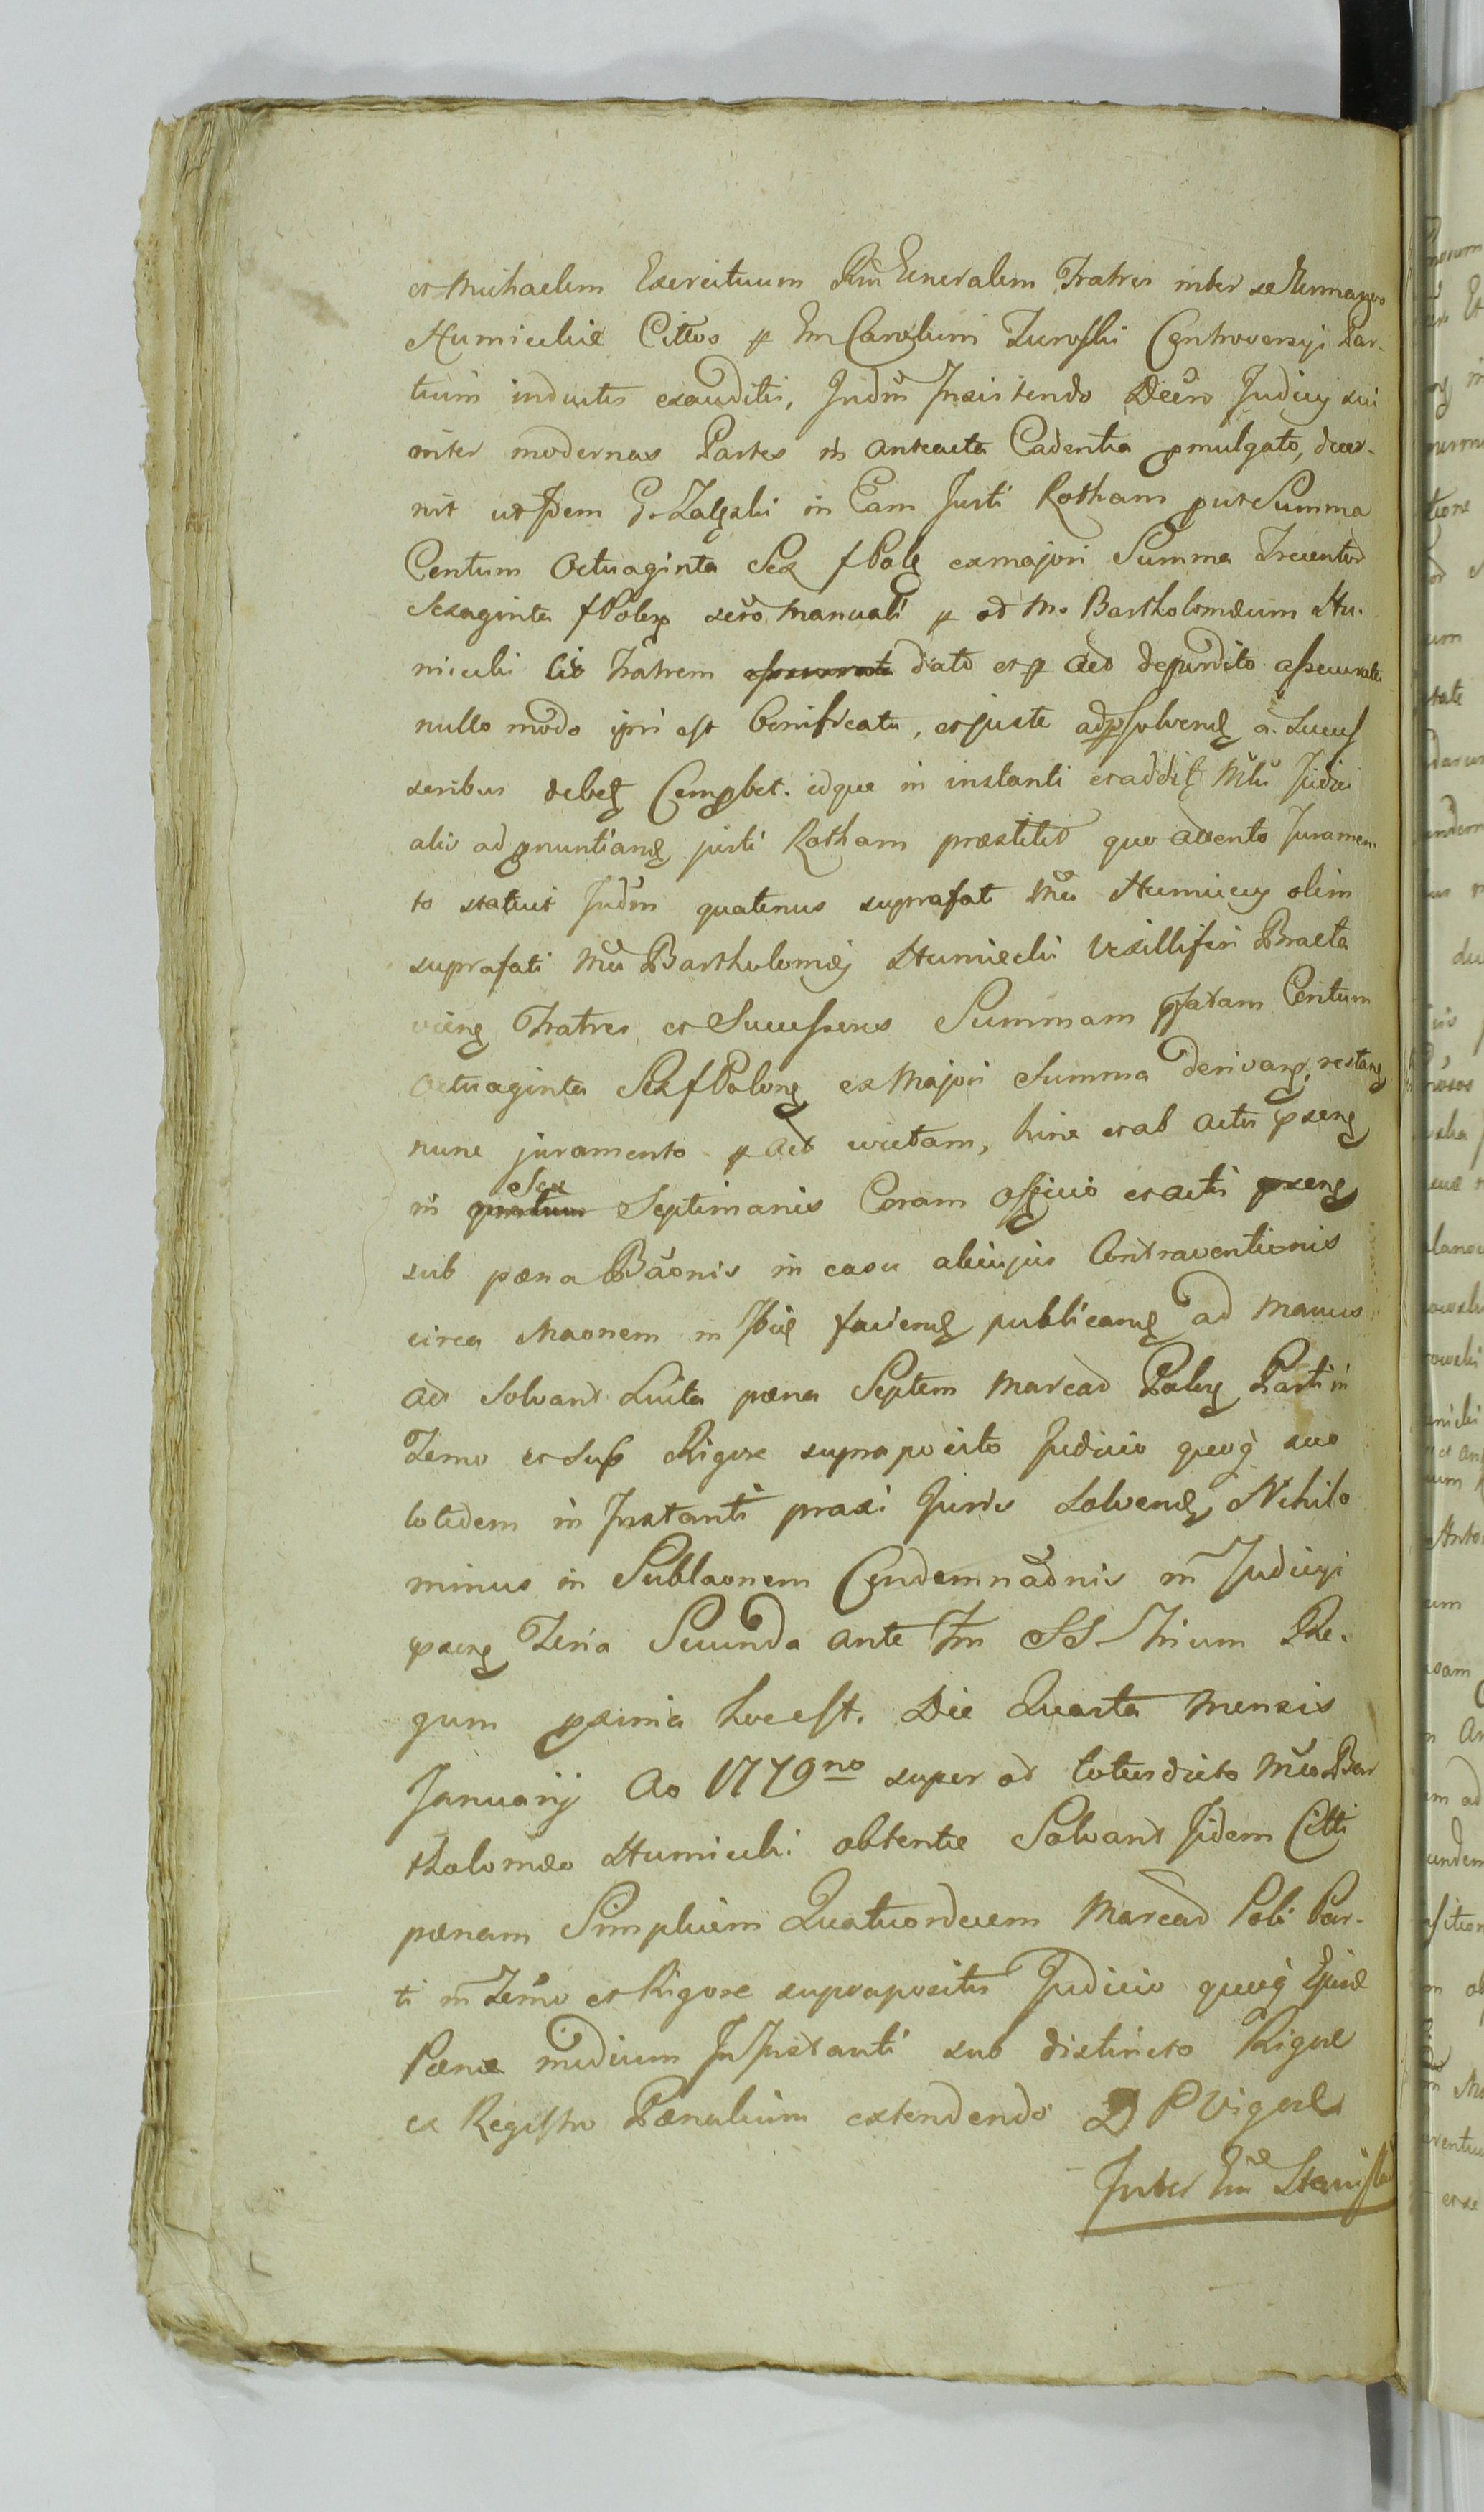 et Michaelem Exercituum Rnı Generalem Fratres inter se Germanos
Humieckie Cittos p Gm Carolum Zurofski Controversÿs Par-
tium inductis exauditis, Judm Insistendo Decro Judicÿ sui
inter modernas Partes in anteacta Cadentia pmulgato, decer-
nit ut Idem G. Załęski in Eam Justi Rotham put Summa
Centum Octuaginta Sex f Pol ex majori Summa Trecentor
Sexaginta f Polon scro manuali p od Mo Bartholomæum Hu-
miecki Citi Fratrem dato et p Act deperdito assecurata
nullo modo ipsi est bonificata, et juste adpsolvend a Succes
soribus debet Compbet. idque in instanti et addit Mtri Judici
alis ad pnuntiand justi Rotham præstitit quo attento Juramen
to statuit Judm quatenus suprafati Mci Humieccÿ olim
suprafati Mci Bartholomæj Humiecki Vexilliferi Bracla
vien Fratres et Successores Summam pfatam Centum
Octuaginta Sex f Polon ex Majori Summa derivan, restan
nunc juramento p Act evictam, hinc et ab actu psen
in Sex Septimanis Coram Officio et actis psen
sub pæna Bãonis in casu alicujus Contraventionis
circa Maonem in Jbie faciend publicand ad manus
Act solvant Luita pæna Septem Marcar Polon Parti in
Termo et sub Rigore supraposito Judicio quoq suo
totidem in Instanti praxi Juris Solvend, Nihilo
minus in Sublaonem Condemnãonis in Judicÿs
psen Feria Secunda ante Fm SS. Trium Re-
gum pxima hoc est. Die Quarta Mensis
Januarÿ Ao 1779no super od totiesdicto Mco Bar
tholomæo Humiecki obtentæ Solvant Iidem Citti
pænam Simplicem Quatuordecem Marcar Poli Par-
ti in Termo et Rigore suprapositis Judicio quoq Ejusd
Pænæ medium In Instanti sub districto Rigore
ex Registro Pænalium extendendo D P Vigore
Inter Gm Stanisła